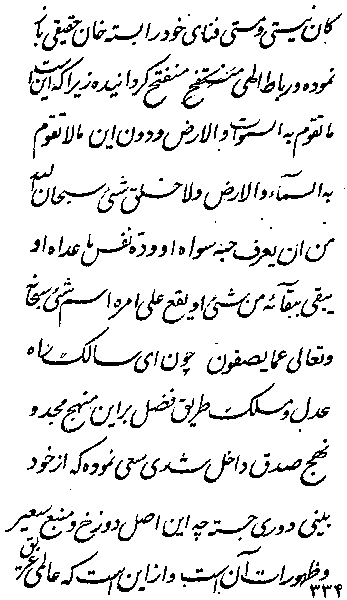 کان نیستی و مستی فنای خود را بسته خان حقیقی باز
نموده و رباط الهی مستفتح منفتح کردانیده زیرا که این است
ما تقوم به السموات والارض و دون این مالا تقوم
به السمآء والارض ولا خلق شیئ سبحان الله
من ان یعرف حبه سواه او ودّه نفس ما عداه او
یبقی ببقآئه من شیئ او یقع علی امره اسم شیئ سبحانه
وتعالی عما یصفون چون ای سالک راه
عدل و مسلک طریق فضل بر این منهج مجد و
نهج صدق داخل شدی سعی نموده که از خود
بینی دوری جسته چه این اصل دوزخ و منبع سعیر
و ظهورات آن است و از این است که عالمی غریق
۳۳۴